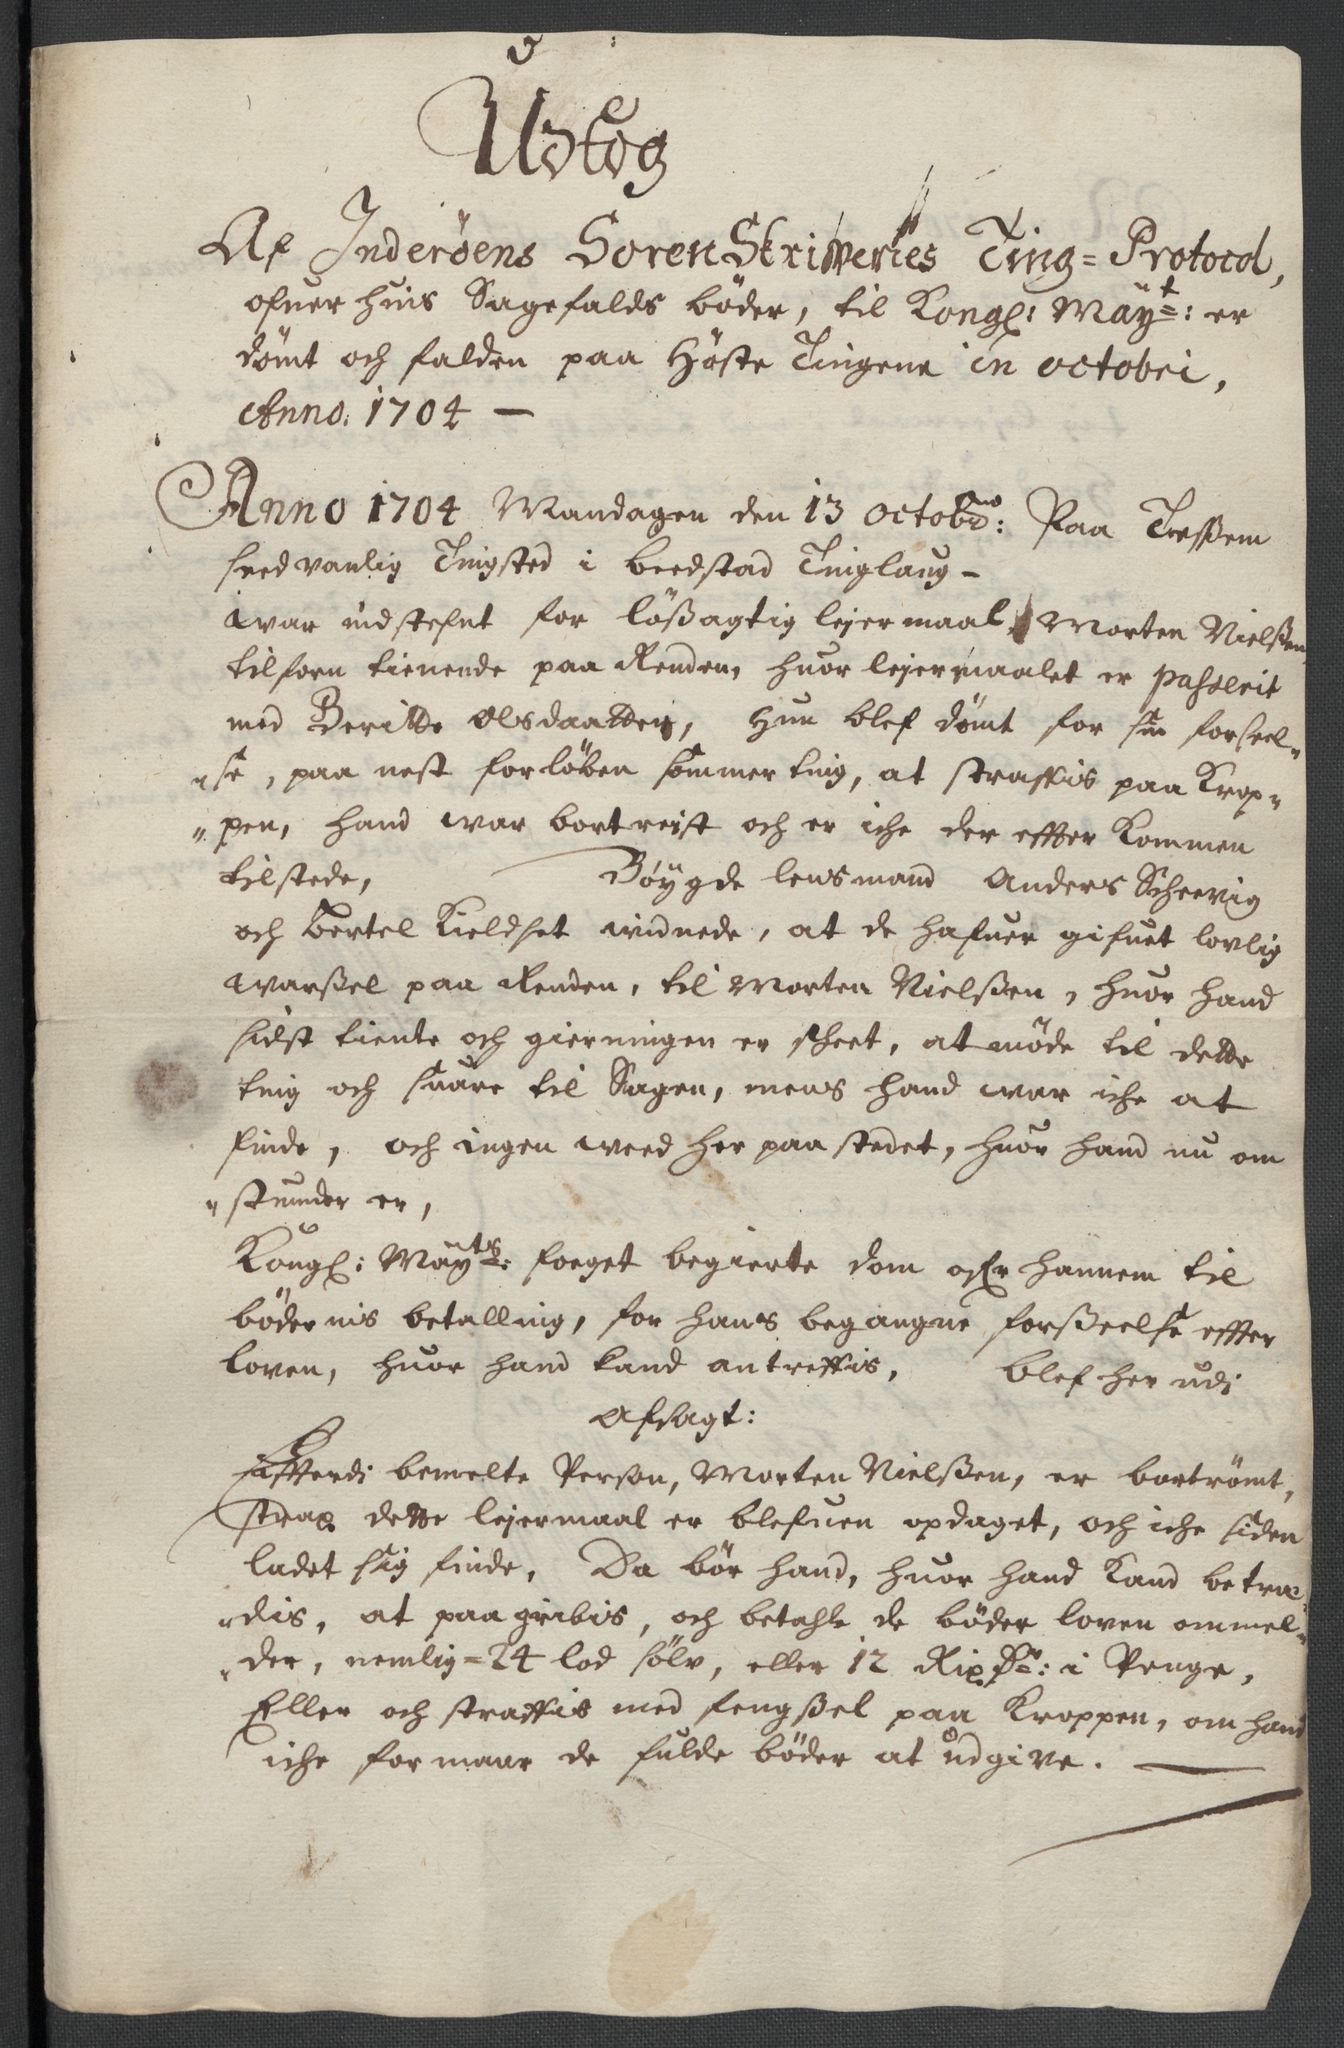 Udtog
Af Inderøens SorenSkriffveries Ting=Protocol,
ofuer huis Sagefalds böder, til Kongl: Mayt: er
dömt och falden paa Höste Tingene in octobri,
Anno 1704 —
Anno 1704 Mandagen den 13 octobr: Paa
sædvanlig Tingsted i beedstad Tinglaug -
war indstefnt for lößagtig lejermaal, Morten Nielßen
tilforn tienende paa Renden, huor lejermaalet er passerit
med Beritte Olsdaatter, Hun blef dömt for sin forseel„
„se, paa nest forløben sommer ting, at straffis paa Krop„
„pen, hand war bortreist och er iche der effter kommen
tilstede, Böygde lensmand Anders Scheevig
och Bertel Kieldset widnede, at de hafuer gifuet lovlig
warßel paa Renden, til Morten Nielßen, huor hand
sidst tiente och gierningen er scheet, at möde til dette
ting och suare til Sagen, mens hand war iche at
finde, och ingen weed her paa stedet, huor hand nu om
„stunder er,
Kongl: Mayts: foeget begierte dom ofr hannem til
bödernis betalling, for hans begangne forßeelse effter
loven, huor hand kand antreffis, blef her udi
afsagt:
Effterdi bemelte Person, Morten Nielßen, er bortrömt,
strax dette lejermaal er blefuen opdaget, och iche siden
ladet sig finde, Da bör hand, huor hand kand betræ„
„dis, at paagribis, och betahle de böder loven ommel„
„der, nemlig = 24 lod sölv, eller 12 Rix dr: i Penge,
Eller och straffis med fengßel paa Kroppen, om hand
iche formaar de fulde böder at udgive. —